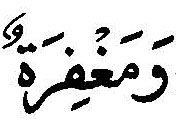 وَمَغْفِرَةٌ